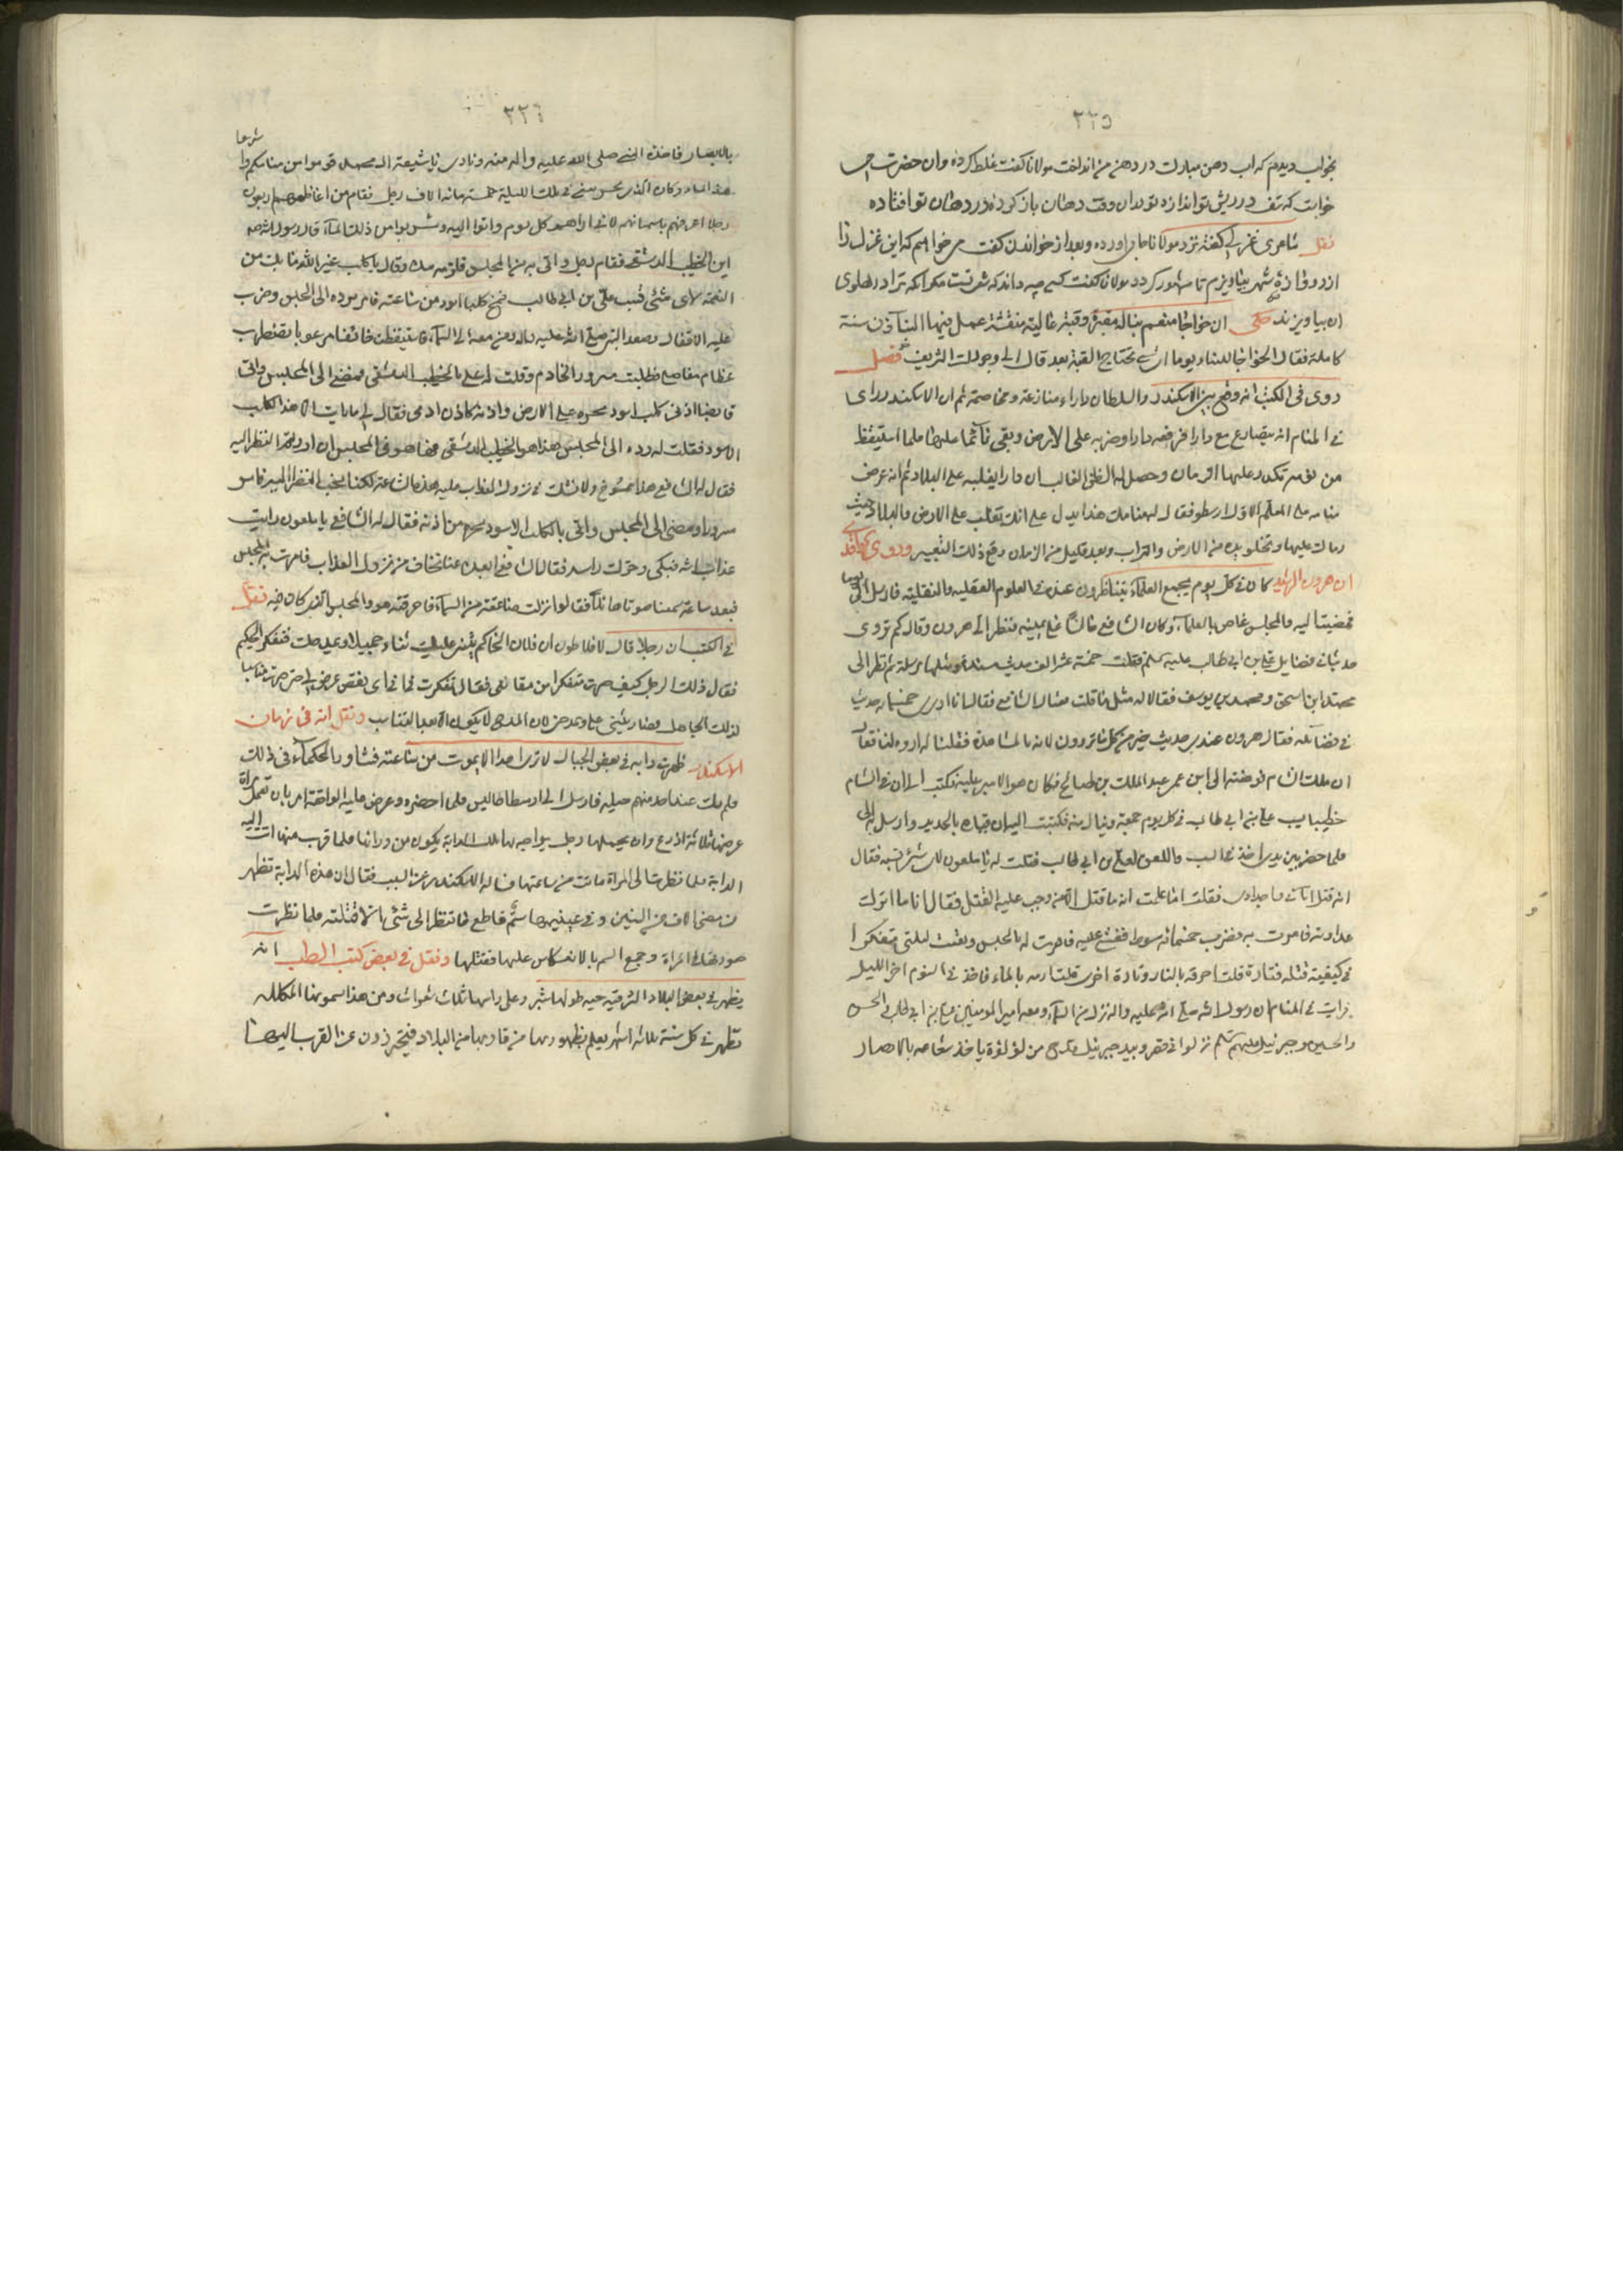 ٣٣٥
بخواب دیدم که اب دهن مبارک در دهن من انداخت مولانا کفت غلط کرده وان حضرت
خواست که تف در ریش تو اندازد تو دران وقت دهان باز کرده در دهان تو افتاده
نقل شاعری غزلی کفته نزد مولانا جامی اورده وبعد از خواندن کفت میخواهم که این غزل را
از دروازه شهر بیاویزم تا مشهور کردد مولانا کفت کسی چه داند که شعر تست مکر انکه ترا در پهلوی
ان بیاویزند حکی ان خواجا منعم بنا له مقبرة وقبة عالية منقشة عمل فيها البناؤن سنة
كاملة فقال الخواجا للبناء يوما اى شئ تحتاج القبة بعد قال الى وجودك الشريف فصل
روى فى الكتب انه وقع بين الاسكندر والسلطان دارا منازعة ومخاصمة ثم ان الاسكندر راى
فى المنام انه يتصارع مع دارا فرفعه دارا وضربه على الارض وبقى نائما عليها فلما استيقظ
من نومه تكدر عليها الزمان وحصل له الظن الغالب ان دارا يغلبه على البلاد ثم انه عرض
منامه على المعلم الاول ارسطو فقال له هذا يدل على انك تغلب على الارض والبلاد حيث
نمت عليها وتخلو يده من الارض والتراب وبعد قليل من الزمان وقع ذلك التعبير وروى
ان هرون الرشيد كان فى كل يوم يجمع العلماء يتناظرون عنده فى العلوم العقلية والنقلية فارسل الى يوما
فمضيت اليه والمجلس غاص بالعلماء وكان الشافعى جالسا على يمينه فنظر الى هرون وقال كم تروى
حديثا فى فضايل على بن ابى طالب عليه سلم فقلت خمسة عشر الف حديث مسند ومثلها مرسلة ثم نظر الى
محمد ابن اسحق ومحمد بن يوسف فقالا له مثل ما قلت فسال الشافعى فقال انا اروى خمسمائة حديث
فى فضائله فقال هرون عندى حديث خير من كل ما تروون لانه بالمشاهدة فقلنا له اروه لنا فقال
ان ملك الشام فوضته الى ابن عمى عبد الملك بن صالح فكان هو الامير عليه فكتب الى ان فى الشام
خطيبا يسب على بن ابى طالب فى كل يوم جمعة وينال منه فكتبت اليه ان قيده بالحديد وارسل به الى
فلما حضر بين يدى اخذ فى السب واللعن لعلى بن ابى طالب فقلت له يا ملعون لاى شئ تسبه فقال
انه قتل ابائى واجدادى فقلت اما علمت انه ما قتل الا من وجب عليه القتل فقال انا ما اترك
عداوته فامرت به فضرب خمسمائة سوط فغشى عليه فامرت له بالحبس وبقيت ليلتى متفكرا
فى كيفية قتله فتارة قلت احرقه بالنار وتارة اخرى قلت ارمه بالماء فاخذنى النوم اخر الليل
فرايت فى المنام ان رسول الله صلى الله عليه واله نزل من السماء ومعه امير المومنين على بن ابى طالب والحسن
والحسين وجبرئيل عليهم سلم نزلوا فى قصر وبيد جبرئيل قدح من لؤلؤة ياخذ شعاعه بالابصار
٣٣٦
بالابصار فاخذه النبى صلى الله عليه واله منه ونادى يا شيعة ال محمد قوموا من منامكم واشربوا
هذا الماء وكان الذى يحرسنى فى تلك الليلة خمسة مائة الاف رجل فقام من اعاظمهم اربعون
رجلا اعرفهم باسمائهم لانى اراهم كل يوم واتوا اليه وشربوا من ذلك الماء قال رسول الله صه
اين الخطيب الدمشقى فقام رجل واتى به من المجلس فلزمه بيده وقال يا كلب غير الله ما بك من
النعمة لاى شئى تسب على بن ابى طالب فمسخ كلبا اسود من ساعته فامر برده الى الحبس وضرب
عليه الاقفال وصعد النبى صلى الله عليه واله ومن معه الى السماء فاستيقظت خائفا مرعوبا تضطرب
عظام مفاصلى فطلبت مسرور الخادم وقلت له على بالخطيب الدمشقى فمضى الى المجلس واتى
قابضا اذنى كلب اسود يجره على الارض واذنه كاذن ادمى فقال لى ما رايت الا هذا الكلب
الاسود فقلت له رده الى المجلس هذا هو الخطيب الدمشقى فها هو فى المجلس ان اردتم النظر اليه
فقال له الشافعى هذا ممسوخ ولا نشك فى نزول العذاب عليه هذه الساعة لكنا نحب النظر اليه فامر
مسرورا ومضى الى المجلس واتى بالكلب الاسود يجره من اذنه فقال له الشافعى يا ملعون رايت
عذاب الله فبكى وحرك راسه فقال الشافعى ابعده عنا نخاف من نزول العذاب فامرت به المجلس
فبعد ساعة سمعنا صوتا هائلا فقالوا نزلت صاعقة من السماء فاحرقته هو والمجلس الذى كان فيه نقل
فى الكتب ان رجلا قال لافلاطون ان فلان الحاكم يثنى عليك ثناء جميلا ويمدحك فتفكر الحكيم
فقال ذلك الرجل كيف صرت متفكرا من مقالتى فقال تفكرت فى اى نقص عرض لى حتى صرت مناسبا
لذلك الجاهل فصار يثنى على ويمدحنى لان المدح لا يكون الا بعد التناسب ونقل انه فى زمان
الاسكندر ظهرت دابة فى بعض الجبال لا ترى احدا الا يموت من ساعته فشاور الحكماء فى ذلك
فلم يك عند احد منهم حيلة فارسل الى ارسطاطاليس فلما احضره وعرض عليه الواقعة امر بان تعمل مراة
عرضها ثلاثة اذرع وان يحملها رجل يواجه بها تلك الدابة يكون من ورائها فلما قرب منها اتت اليه
الدابة فلما نظرت الى المراة ماتت من ساعتها فساله الاسكندر عن السبب فقال ان هذه الدابة تظهر
فى مضى الاف من السنين وفى عينيها سم قاطع فما تنظر الى شئى الا قتلته فلما نظرت
صورتها فى المراة رجع السم بالانعكاس عليها فقتلها ونقل فى بعض كتب الطب انه
يظهر فى بعض البلاد الشرقية حية طولها شبر وعلى راسها ثلاث شعرات ومن هذا سموها المكللة
تظهر فى كل سنة ثلاثة اشهر يعلم بظهورها من قاربها من البلاد فيتحرزون عن القرب اليها